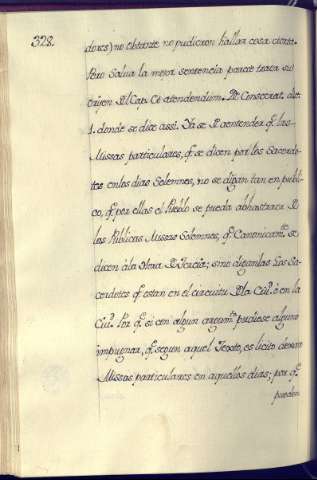 328.
dores) no obstante no pudieron hallar cosa cierta.
Pero Salva la mejor sentencia parece trahe su
origen Del Cap. Et atendendum. De Consecrat. dist.
1. donde se dice assi. Ya se D. entender q.e las
Missas particulares, q.e se dicen por los Sacerdo-
tes en los dias Solemnes, no se digan tan en publi-
co, q.e por ellas el Pueblo se pueda abhastraer D.
las Publicas Missas Solemnes, q.e Canonicam.te se
dicen à la Hora D. Tercia; sino diganlas los Sa-
cerdotes q.e estan en el circuitu D. la Ciu.d ò en la
Ciu.d Por q.e si con algun argum.to pudiese alguno
impugnar, q.e segun aquel Texto, es licito
Missas particulares en aquellos dias; por q.e
pueden